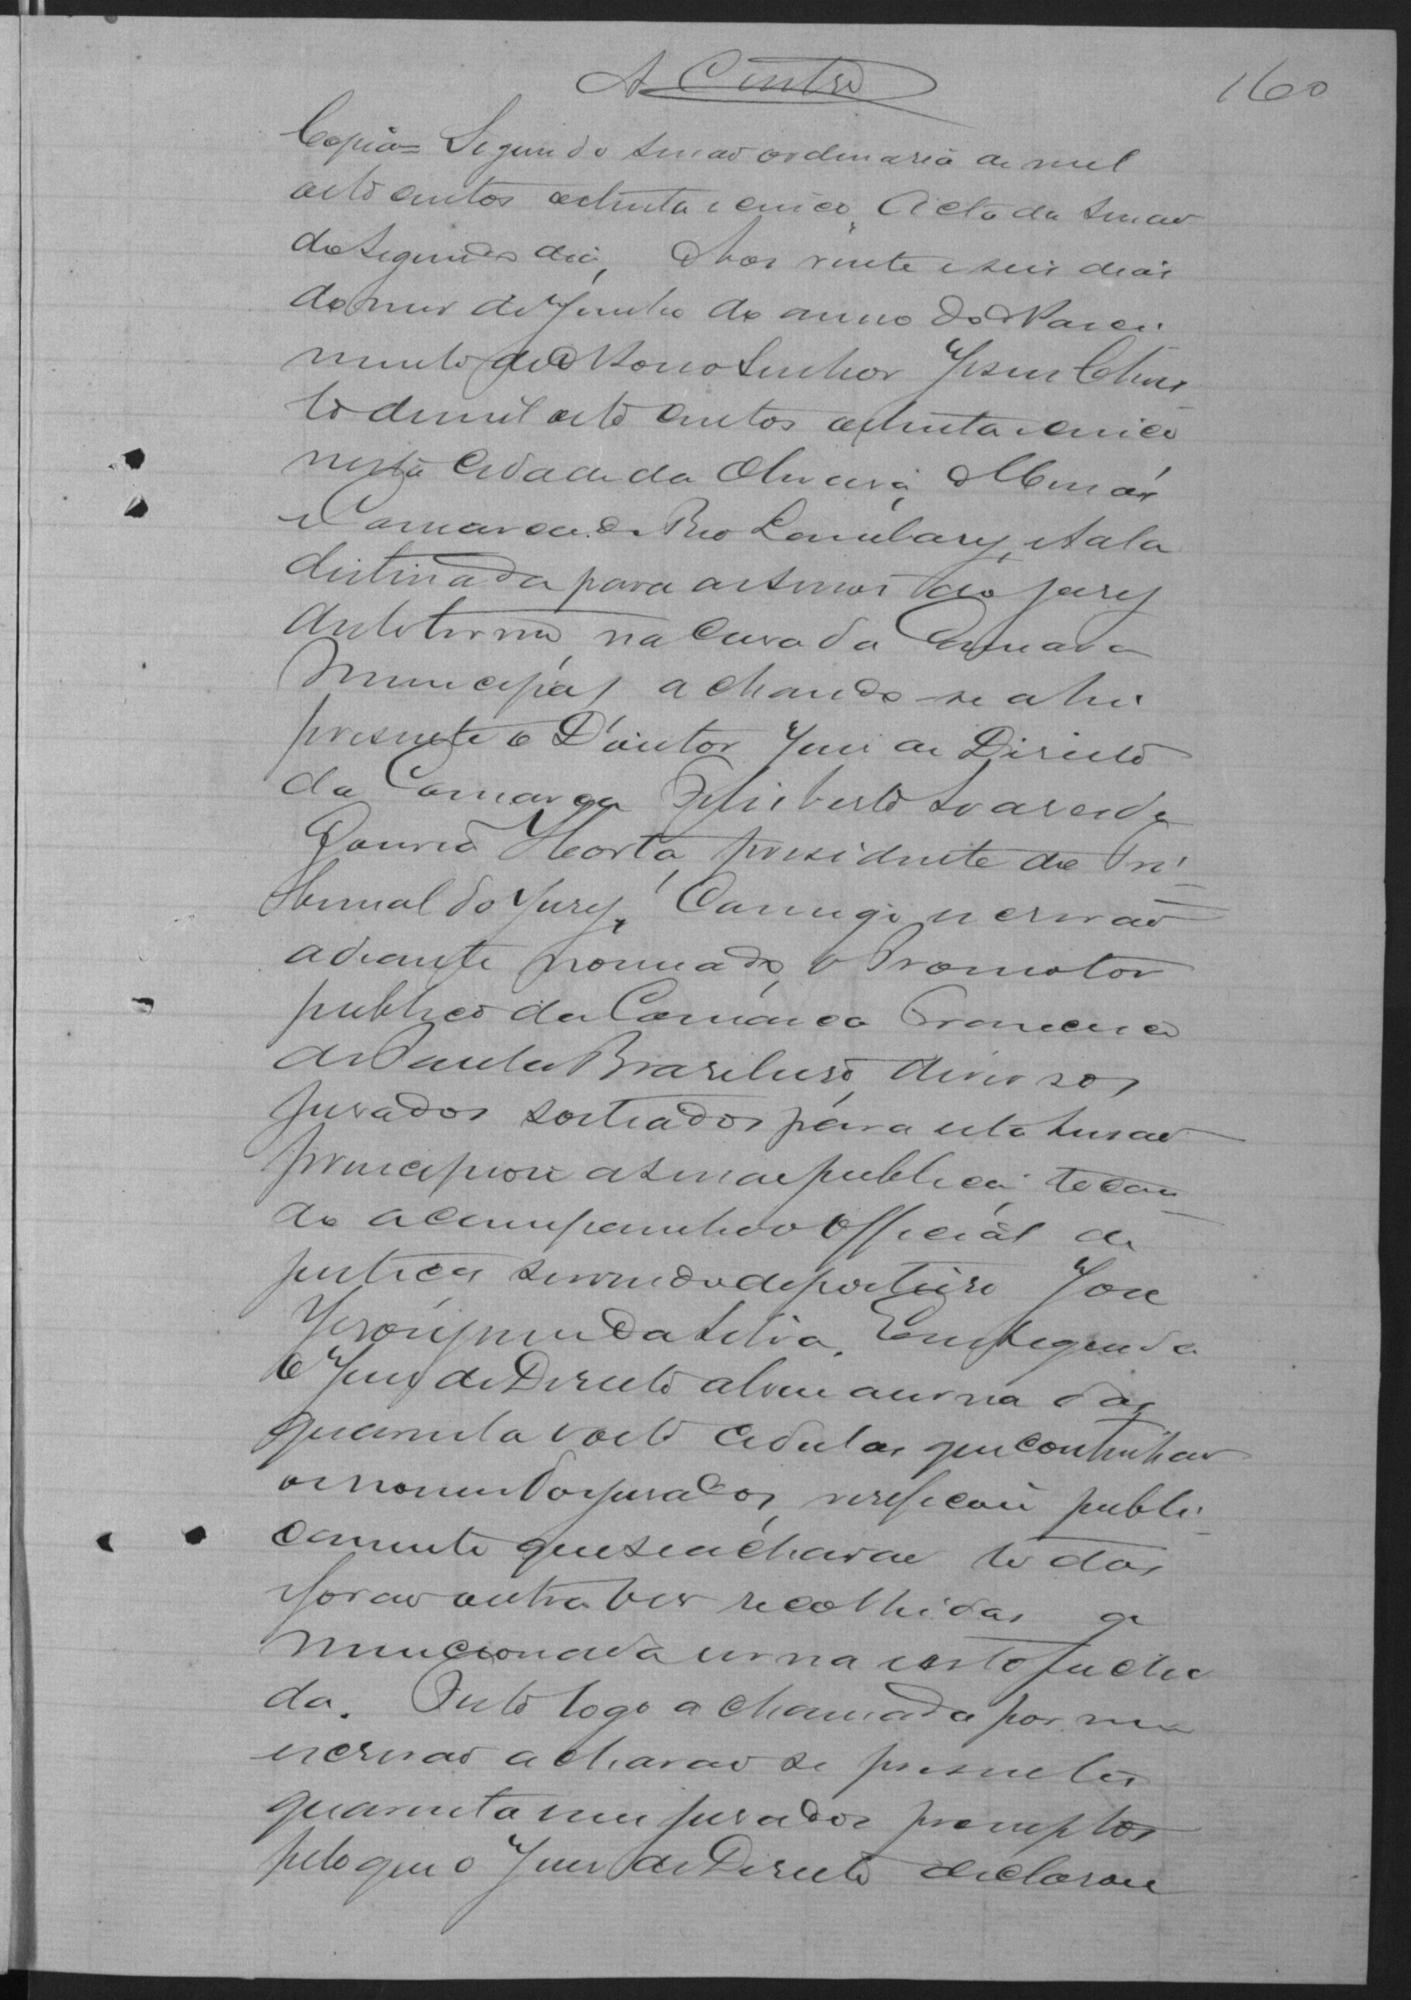 160
Copia = Segunda sessão ordinaria de mil
oito centos oitenta e cinco. Acta da sessão
do segundo dia, Aos vinte e seis dias
do mes de Junho do anno do Nasci-
mento de Nosso Senhor Jesus Chris-
to de mil oito centos oitenta e cinco
nesta Cidade da Oliveira, Minas
e Comarca do Rio Lambary, e sala
distinada para as sessoes do jury
deste termo, na casa da Camara
Municipal achando-se ahi
presente o Doutor Juiz de Direito
da Comarca Felisberto Soares de
Gouvea Horta, presidente do Tri-
bunal do Jury, Commigo escrivão
adeante nomeado, o Promotor
publico da Comarca Francisco
de Paula Brasileiro, diversos
jurados sorteados para esta sessão
principiou a sessão publica, tocan-
do a campanha o Official de
justiça servindo de porteiro José
Jeronymo da Silva. Em seguida
o Juiz de Direito abriu a urna das
quarenta e oito cedulas que continhão
os nomes dos jurados, verificou publi-
camente que se achavão todas
e forão outra vez recolhidas a
mencionada urna e esta fecha
da. Feito logo a chamada por mim
escrivão acharão se presentes
quarenta e um jurados promptos
pelo que o Juiz de Direito declarou